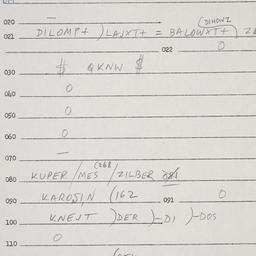 020 —
(DIHONZ
021 DILOMP+ )LAJXT+ = BALOWXT+)
022 0
$ QKNW $
030
0
040
0
050
0
060
—
070
(268
080 KUPER/MES/ZILBER
090 KAROSIN (162 091 0
100 KNEJT )DER )-DI )-DOS
110 0